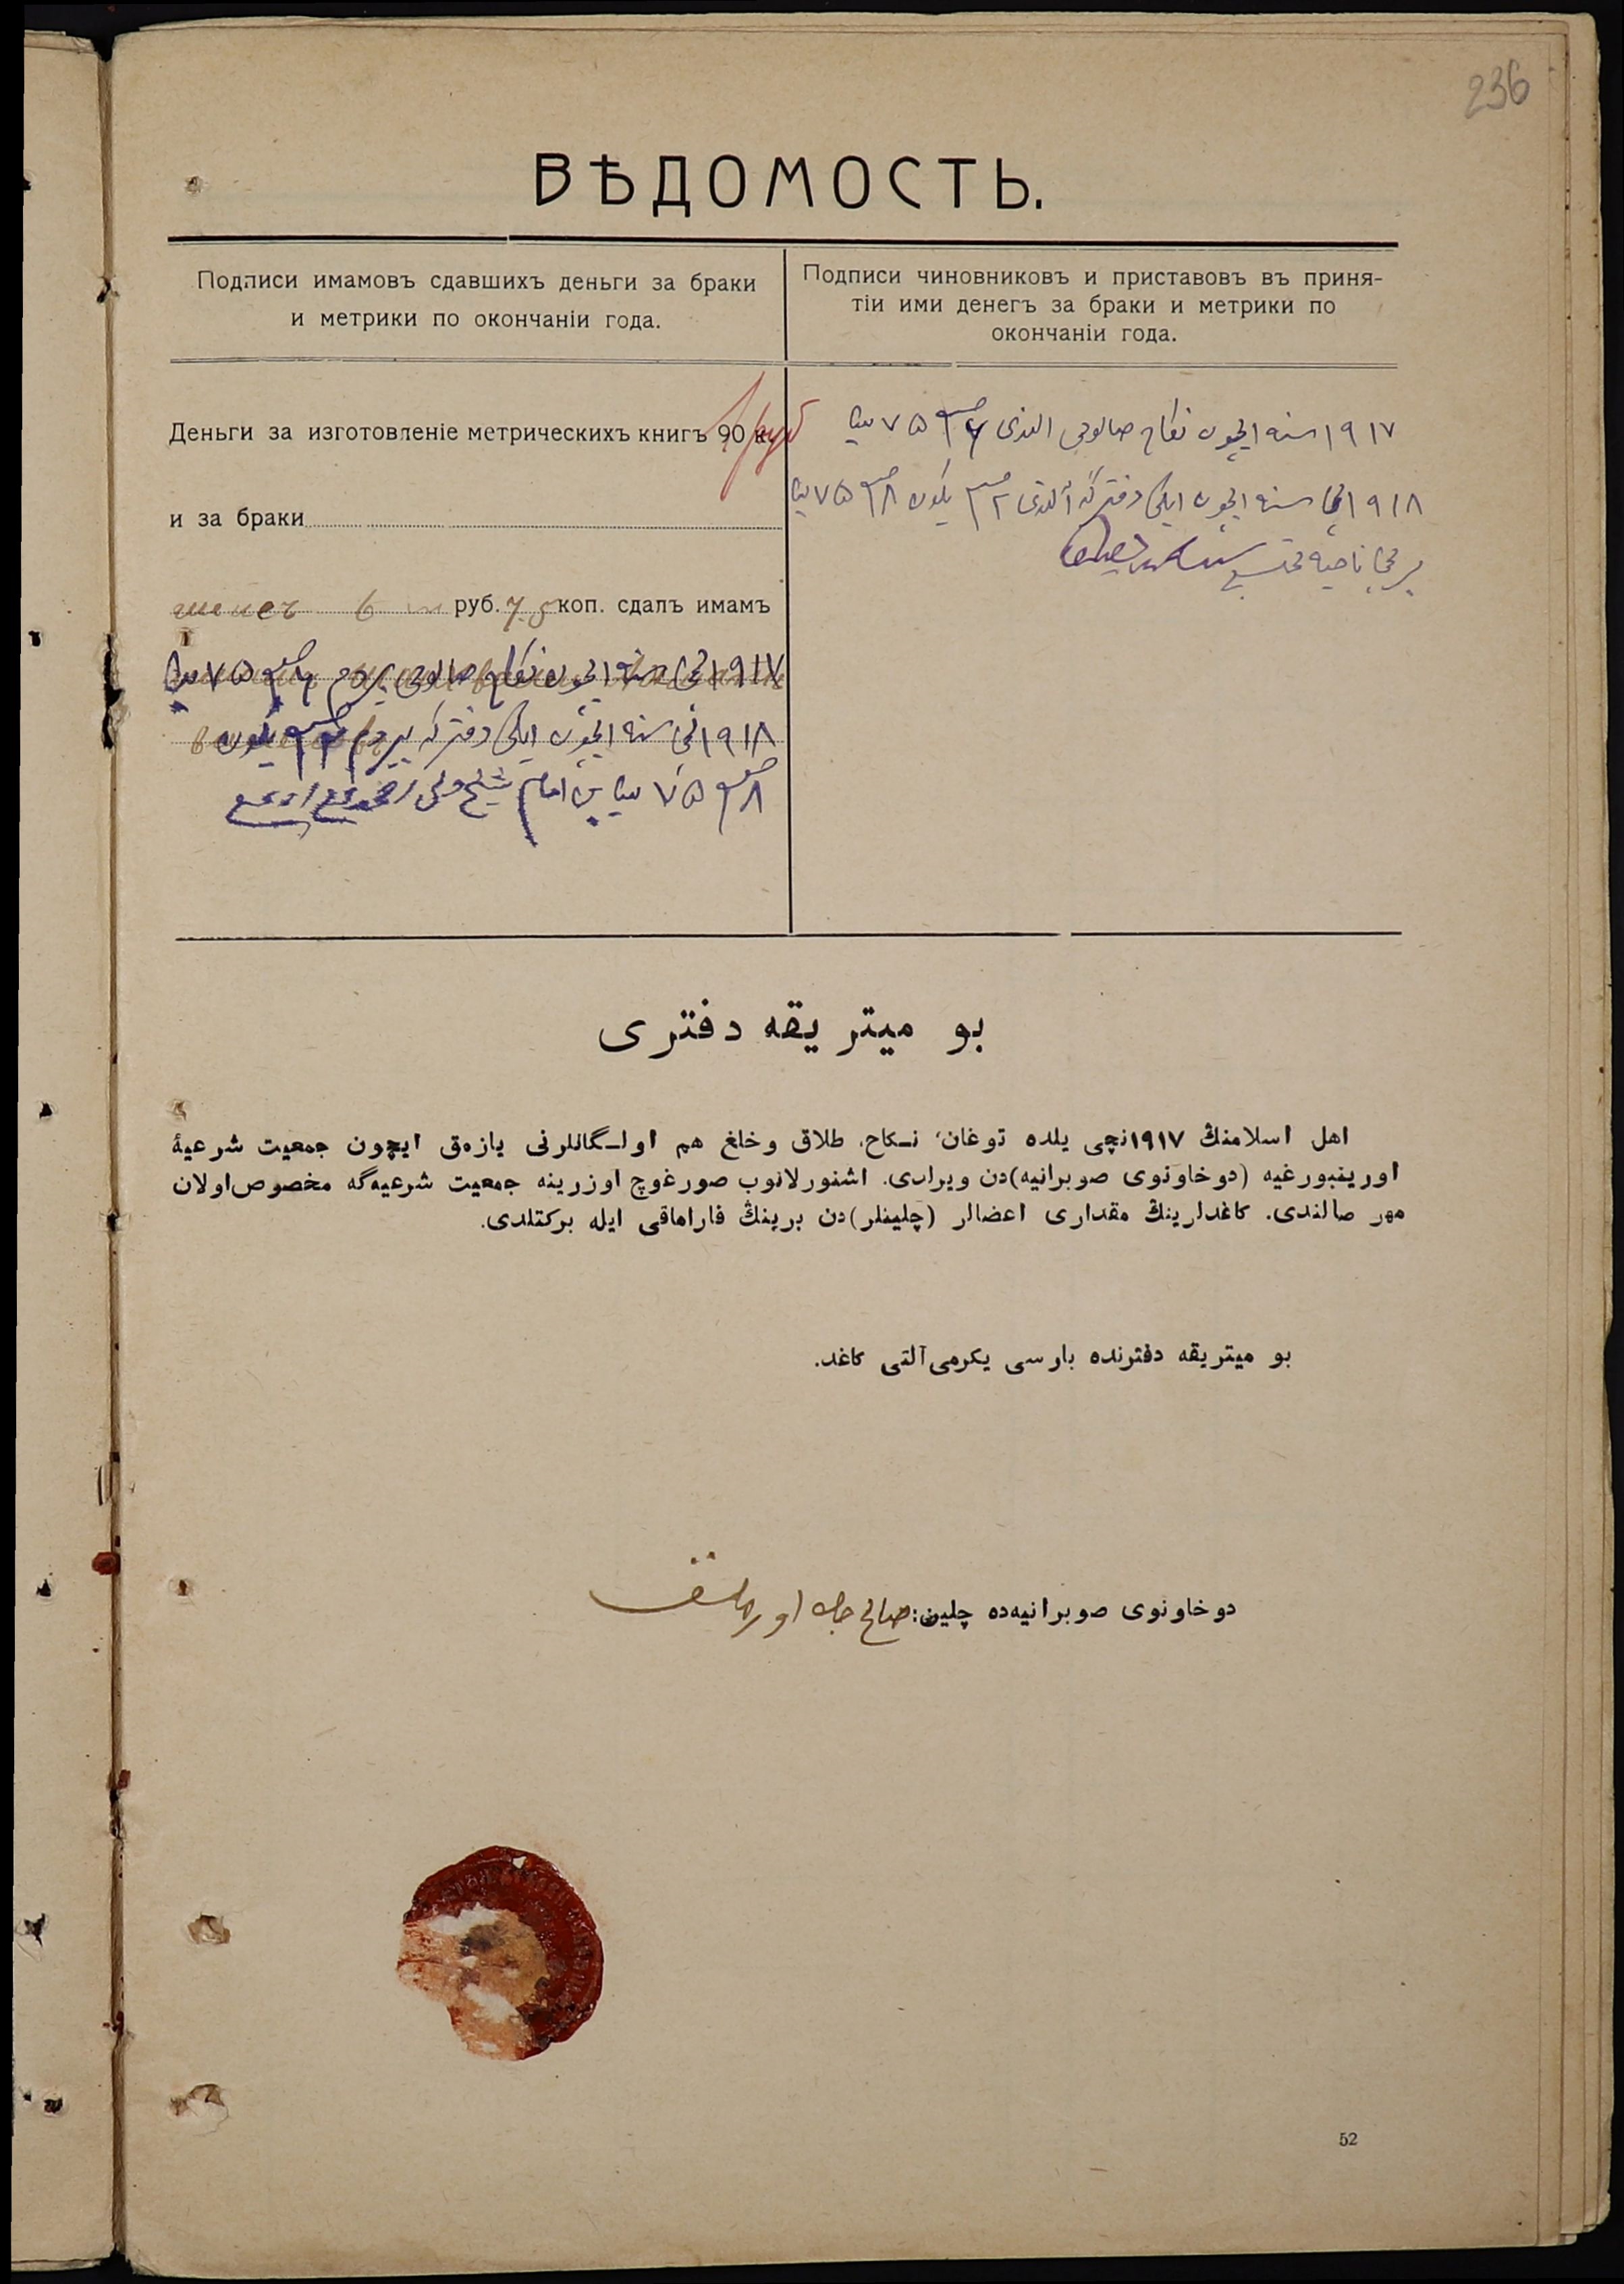 236
ВѢДОМОСТЬ.
Подписи имамовъ сдавшихъ деньги за браки
и метрики по окончаніи года.
Подписи чиновниковъ и приставовъ въ приня-
тіи ими денегъ за браки и метрики по
окончаніи года.
Деньги за изготовленіе метрическихъ книгъ 90 к.
и за браки
6 руб. 75 коп. сдалъ имамъ
۱۹۱۷نچی سنه ایچون نکاح صالوغی بیردم ۶ ۷۵
۱۹۱۸نچی سنه ایچون ایکی دفترگه بیردم ۲ یکون
۸ ۷۵ امام شیخ ولی
۱۹۱۷ سنه ایچون نکاح صالوغی آلندی ۶ ۷۵
۱۹۱۸نچی سنه ایچون ایکی دفترگه آلندی ۲ یکون ۸ ۷۵
برنچی ناحیه محتسبی
بو میتریقه دفتری
اهل اسلامنڭ ۱۹۱۷نچی یلده توغان، نـکاح، طلاق وخلغ هم اولـگانلرنی یازمق ایچون جمعیت شرعیهٔ
اورینبورغیه (دوخاونوی صوبرانیه)دن ویرلدی. اشنورلانوب صورغوچ اوزرینه جمعیت شرعیه‌گه مخصوص اولان
مهر صالندی. کاغدلرینڭ مقداری اعضالر (چلینلر)دن برینڭ قاراماقی ایله برکتلدی.
بو میتریقه دفترنده بارسی یکرمی آلتی کاغد.
دوخاونوی صوبرانیه‌ده چلین: صالح جان اورمانف
52